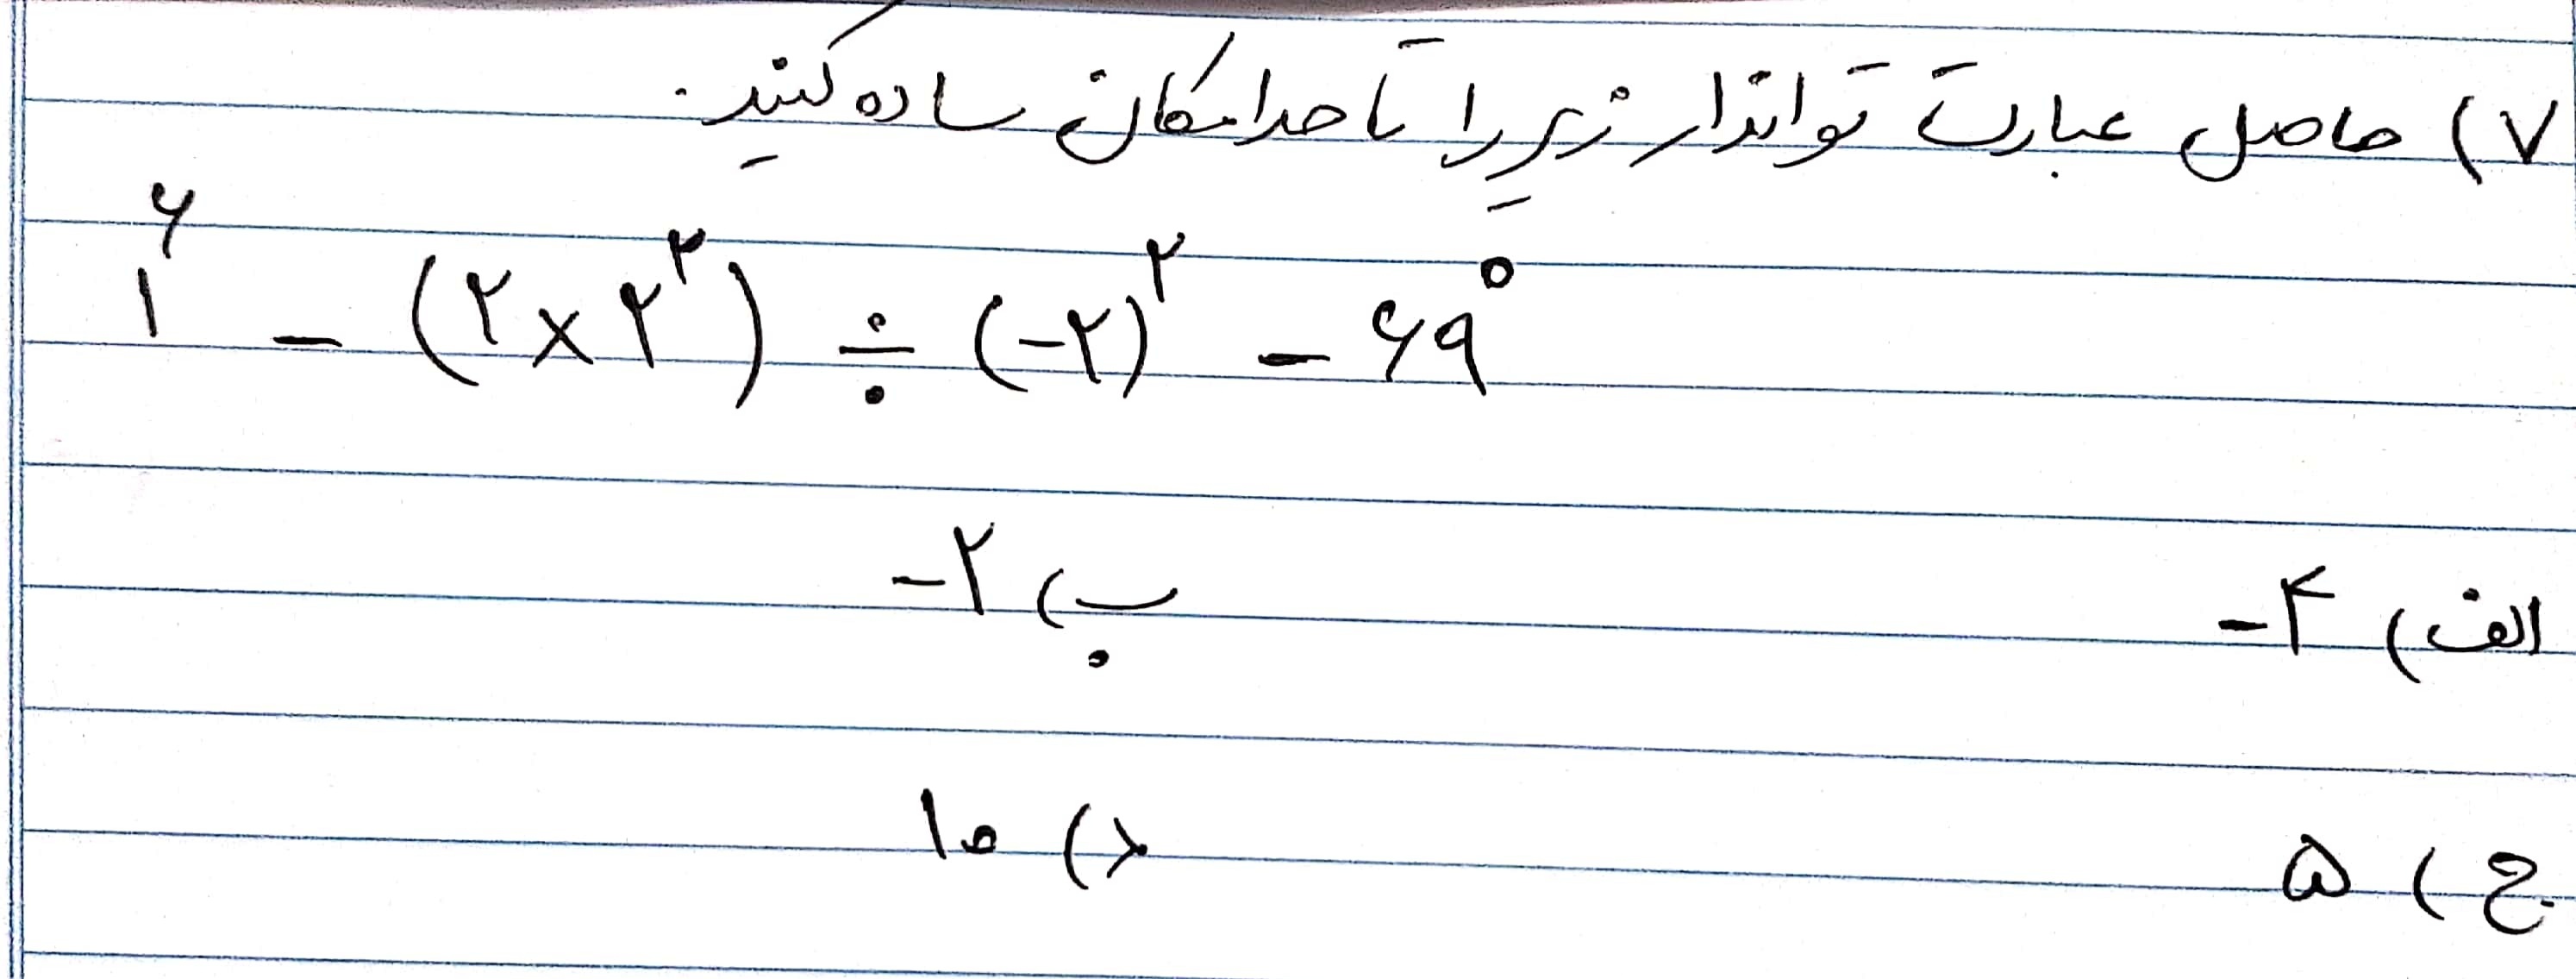 ۷) حاصل عبارت تواندار زیر را تا حد امکان ساده کنید.
۱^۶ − (۲ × ۲^۳) ÷ (−۲)^۲ − ۶۹^۰
الف) −۴ ب) −۲
ج) ۵ د) ۱۰